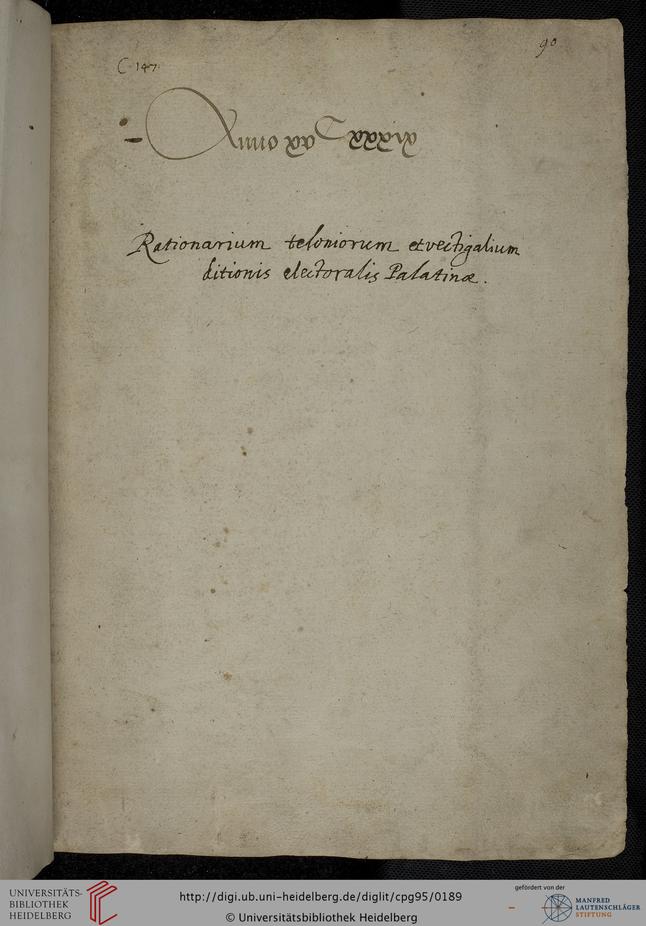 C 147.
90
Anno
Rationarium teloniorum et vectigalium
ditionis electoralis Palatinæ.
UNIVERSITÄTS-
BIBLIOTHEK
HEIDELBERG
http://digi.ub.uni-heidelberg.de/diglit/cpg95/0189
© Universitätsbibliothek Heidelberg
gefördert von der
MANFRED
LAUTENSCHLÄGER
STIFTUNG